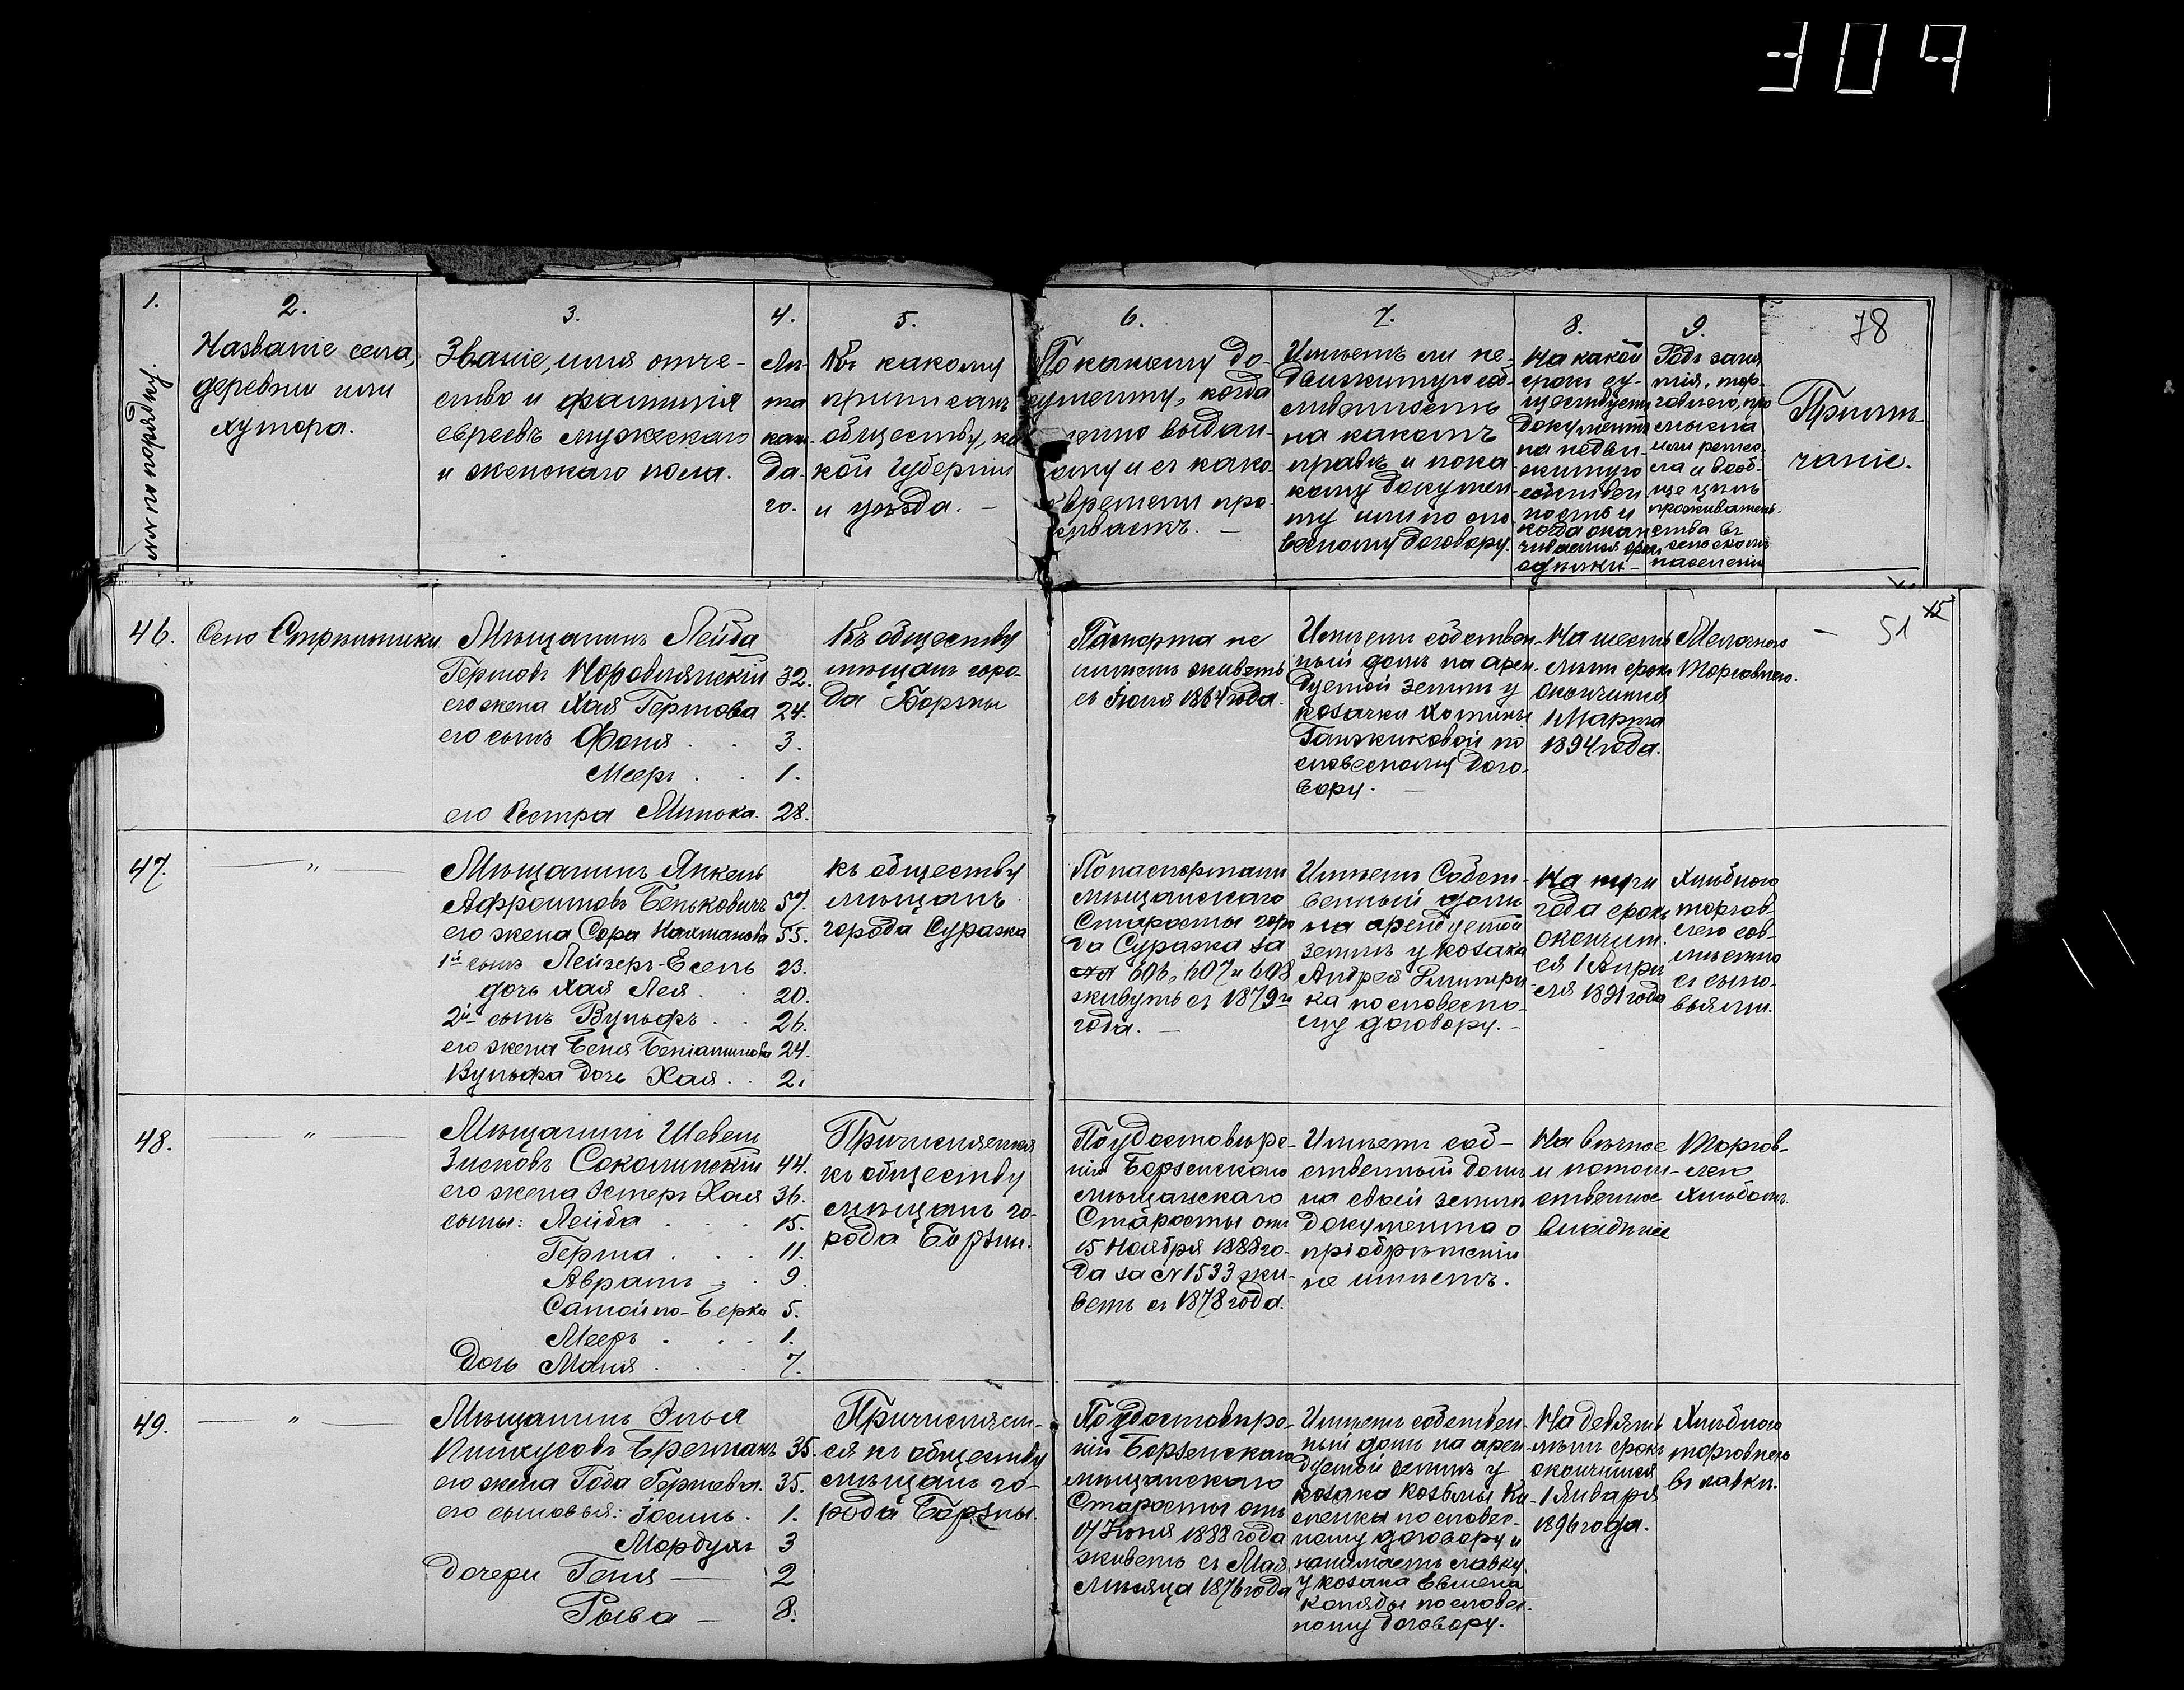 309
1.
№№ по порядку.
2.
Названіе села,
деревни или
хутора.
3.
Званіе, имя отче-
ство и фамилія
евреевъ мужескаго
и женскаго пола.
4.
Лѣ-
та
каж-
да-
го.
5.
Къ какому
приписанъ
обществу, ка
кой губерніи
и уѣзда. —
6.
По какому до-
кументу, когда
выдан-
ому и съ како
времени про-
живаетъ. —
7.
Имѣетъ ли не-
движимую соб-
ственность
на какомъ
правѣ и пока
кому докумен-
ту или по сло-
весному договору.
8.
На какой
срокъ су-
ществуетъ
документъ
на недви-
жимую
собствен
ность и
когда окан
чивается срокъ
9.
Родъ заня
тія, тор-
говлею, про
мысла
или ремес-
ла и вооб-
ще цѣль
проживатель-
ства въ
сельскомъ
населеніи
78
Примѣ-
чаніе.
46.
Село Стрѣльники
Мѣщанинъ Лейба
Гершовъ Норовлянскій 32.
его жена Хая Гершова 24.
его сынъ Фоня . . 3.
Мееръ . . 1.
его Сестра Минька. 28.
Къ обществу
мѣщанъ горо-
да Борзны
Паспорта не
имѣетъ живетъ
съ Іюля 1864 года.
Имѣетъ собствен-
ный домъ на арен-
дуемой землѣ у
козачки Хотины
Ганжиковой по
словесному дого-
вору. —
На шесть
лѣтъ срокъ
окончится
1 Марта
1894 года.
Мелочною
Торговлею.
—
51
15
47.
— " —
Мѣщанинъ Янкель
Афроимовъ Беньковичъ 57.
его жена Сора Нахманова 55.
1й сынъ Лейзеръ-Есель 23.
дочь Хая Лея . 20.
2й сынъ Вульфъ . . 26.
его жена Беня Беніаминова 24.
Вульфа дочь Хая . . 2.
къ обществу
мѣщанъ
города Суража
По паспортамъ
мѣщанскаго
Старосты горо
да Суража за
№№ 606, 607 и 608
живутъ съ 1879 г.
года. —
Имѣетъ Собст-
венный домъ
на арендуемой
землѣ у козака
Андрея
ка по словесно-
му договору. —
На три
года срокъ
окончит.
ся 1 Апрѣ
ля 1891 года
Хлѣбною
торгов-
лею сов-
мѣстно
съ сыно-
вьями.
48.
— " —
Мѣщанинъ Шевель
Зисковъ Соколинскій 44.
его жена Эстеръ Хая 36.
сыны: Лейба . . . 15.
Герша . . . 11.
Аврамъ . . 9.
Самойло-Берко 5.
Мееръ . . . 1.
Дочь Маня . . . 7.
Причисляется
къ обществу
мѣщанъ го-
рода Борзны.
По удостовѣре-
нію Борзенскаго
мѣщанскаго
Старосты отъ
15 Ноября 1888 го-
да за № 1533 жи-
ветъ съ 1878 года.
Имѣетъ соб-
ственный домъ
на своей землѣ
документа о
пріобрѣтеніи
не имѣетъ.
На вѣчное
и потом-
ственное
владѣніе
Торгов-
лею
Хлѣбомъ.
49.
— " —
Мѣщанинъ Элья
Пинкусовъ Брегманъ 35.
его жена Года Гершева. 35.
его сыновья: Іосель. 1.
Мордухъ 3
дочери Геня — 2
Рыва — 8.
Причисляет-
ся къ обществу
мѣщанъ го-
рода Борзны.
По удостовѣре-
нію Борзенскаго
мѣщанскаго
Старосты отъ
17 Іюня 1888 года
живетъ съ Мая
мѣсяца 1876 года
Имѣетъ собствен-
ный домъ на арен-
дуемой землѣ у
козака Козьмы Ки-
сленка по словес-
ному договору и
нанимаетъ лавку
у козака Евмена
Коляды по словес-
ному договору.
На девять
лѣтъ срокъ
окончится
1 Января
1896 года.
Хлѣбною
торговлею
въ лавкѣ.